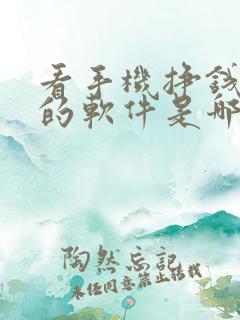 看手機挣錢
的軟件是哪
陶然忘記
未经同意禁止转载